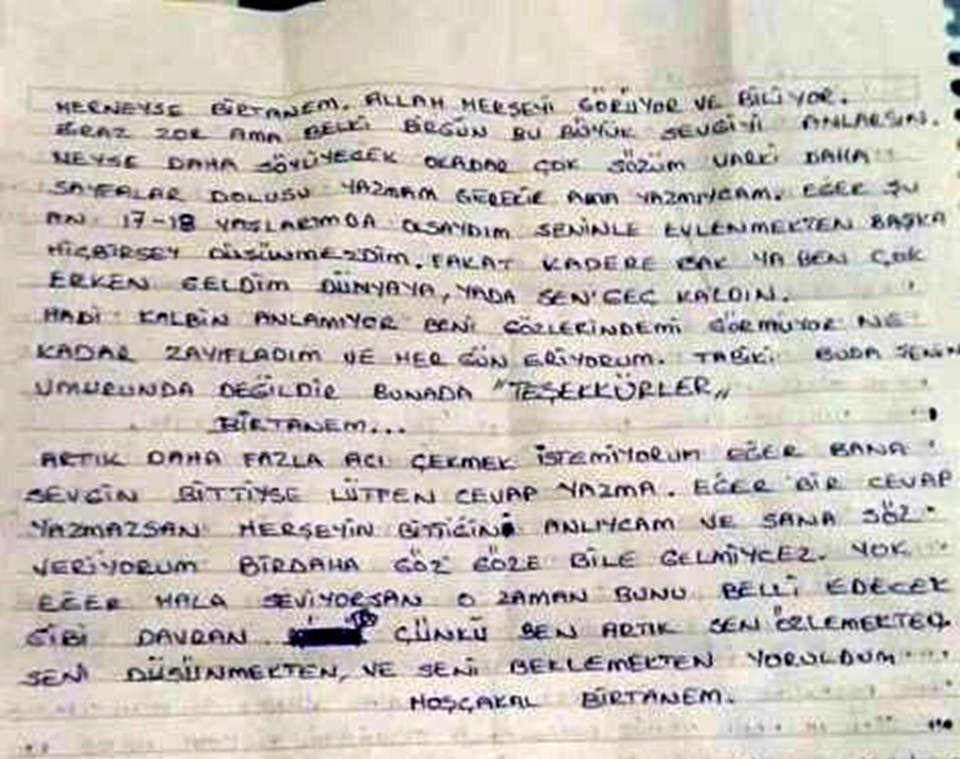 HERNEYSE BİRTANEM. ALLAH HERŞEYİ GÖRÜYOR VE BİLİYOR.
BİRAZ ZOR AMA BELKİ BİRGÜN BU BÜYÜK SEVGİYİ ANLARSIN.
NEYSE DAHA SÖYÜYECEK OKADAR ÇOK SÖZÜM VARKİ DAHA
SAYFALAR DOLUSU YAZMAM GEREKİR AMA YAZMIYCAM. EĞER ŞU
AN 17-18 YAŞLARIMDA OLSAYDIM SENİNLE EVLENMEKTEN BAŞKA
HİÇBİRŞEY DÜŞÜNMEZDİM. FAKAT KADERE BAK YA BEN ÇOK
ERKEN GELDİM DÜNYAYA, YADA SEN GEÇ KALDIN.
HADİ KALBİN ANLAMIYOR BENİ GÖZLERİNDEMİ GÖRMÜYOR NE
KADAR ZAYIFLADIM VE HER GÜN ERİYORUM. TABİKİ BUDA SENİN
UMURUNDA DEĞİLDİR BUNADA "TEŞEKKÜRLER"
BİRTANEM...
ARTIK DAHA FAZLA ACI ÇEKMEK İSTEMİYORUM EĞER BANA
SEVGİN BİTTİYSE LÜTFEN CEVAP YAZMA. EĞER BİR CEVAP
YAZMAZSAN HERŞEYİN BİTTİĞİNİ ANLIYCAM VE SANA SÖZ
VERİYORUM BİRDAHA GÖZ GÖZE BİLE GELMİYCEZ. YOK
EĞER HALA SEVİYORSAN O ZAMAN BUNU BELLİ EDECEK
GİBİ DAVRAN ÇÜNKÜ BEN ARTIK SEN ÖZLEMEKTEN.
SENİ DÜŞÜNMEKTEN, VE SENİ BEKLEMEKTEN YORULDUM
HOŞÇAKAL BİRTANEM.